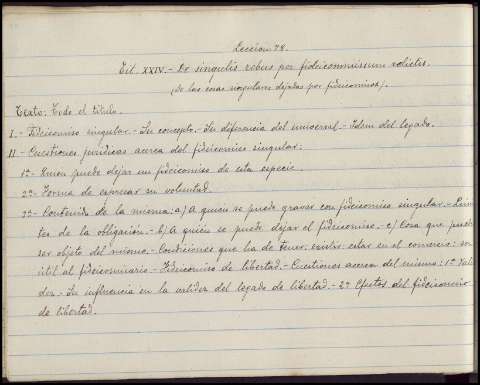 Lección 78.
Tít. XXIV.- De singulis rebus per fideicommissum relictis.
(De las cosas singulares dejadas por fideicomiso).
Texto: Todo el título.
I.- Fideicomiso singular.- Su concepto.- Su diferencia del universal.- Idem del legado.
II.- Cuestiones jurídicas acerca del fideicomiso singular:
1º- Quien puede dejar un fideicomiso de esta especie.
2º- Forma de expresar su voluntad.
3º- Contenido de la misma: a) A quien se puede gravar con fideicomiso singular.- Lími-
tes de la obligación.- b) A quién se puede dejar el fideicomiso.- c) Cosa que puede
ser objeto del mismo.- Condiciones que ha de tener: existir: estar en el comercio: ser
útil al fideicomisario.- Fideicomiso de libertad.- Cuestiones acerca del mismo: 1º Vali-
dez.- Su influencia en la validez del legado de libertad.- 2º Efectos del fideicomiso
de libertad.